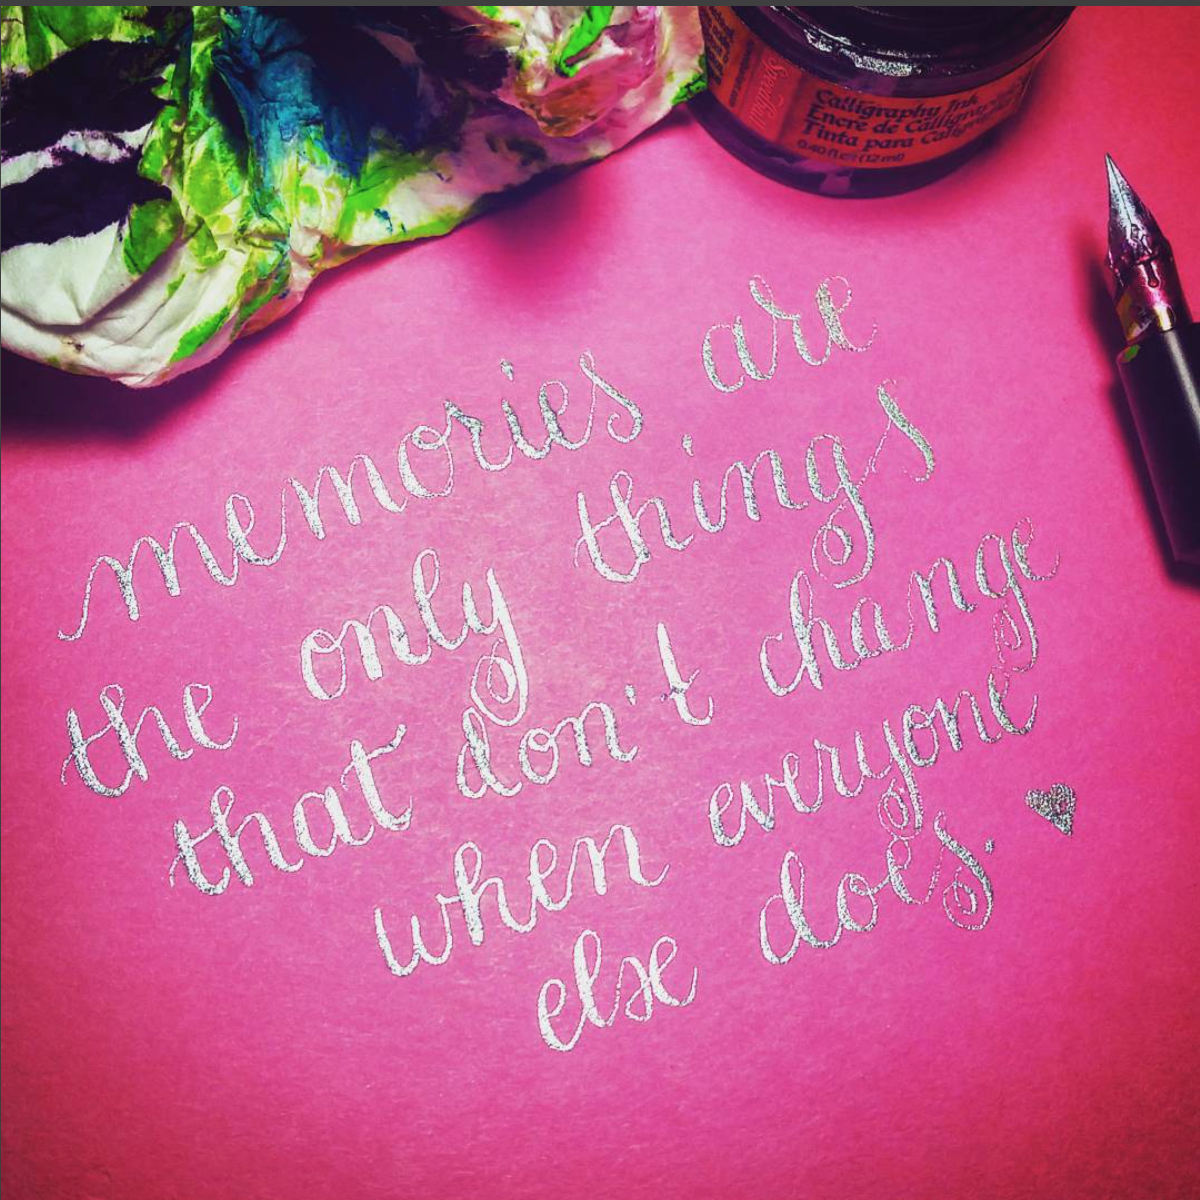 Calligraphy Ink
Encre de Calligraphie
Tinta para Caligrafía
0.40 fl oz (12 ml)
memories are
the only things
that don't change
when everyone
else does.